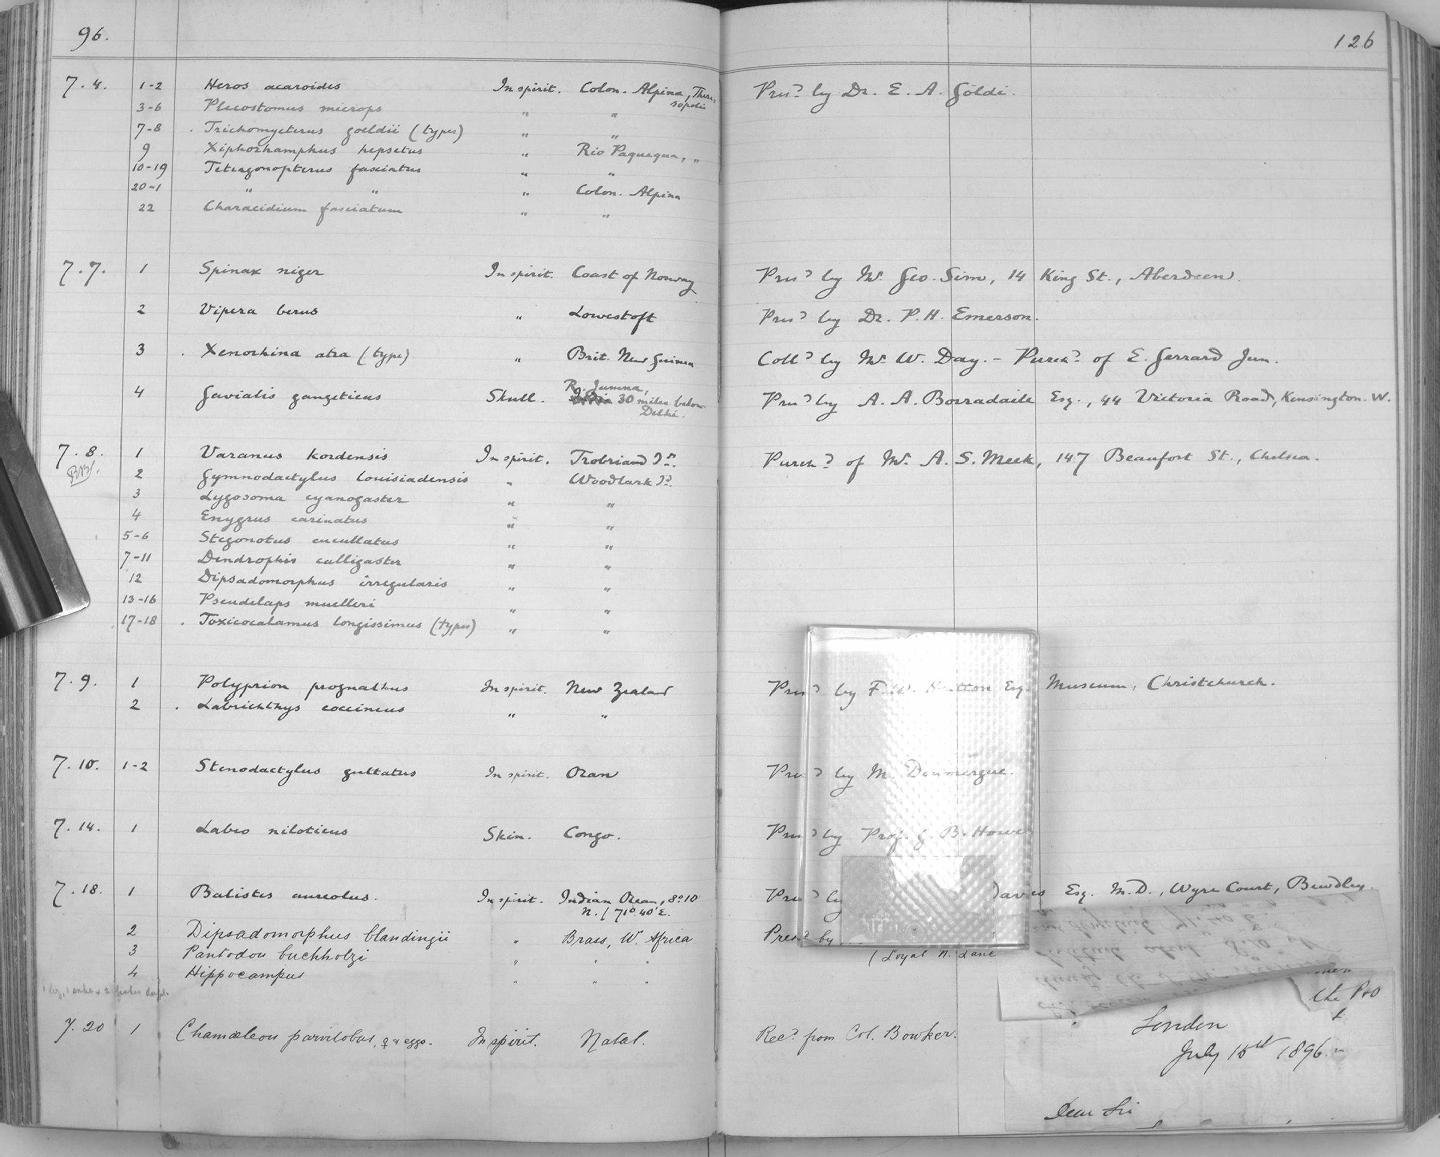 96.
126
7.4. 1-2 Heros acaroides In spirit. Colon. Alpina, Theresopolis Pres.d by Dr. E. A. Göldi.
3-6 Plecostomus microps " "
7-8 . Trichomycterus goeldii (types) " "
9 Xiphorhamphus hepsetus " Rio Paquequa, "
10-19 Tetragonopterus fasciatus " "
20-1 " " " Colon. Alpina
22 Characidium fasciatum " "
7.7. 1 Spinax niger In spirit. Coast of Norway Pres.d by Mr. Geo. Sim, 14 King St., Aberdeen.
2 Vipera berus " Lowestoft Pres.d by Dr. P. H. Emerson.
3 . Xenorhina atra (type) " Brit. New Guinea Coll.d by Mr. W. Day. - Purch.d of E. Gerrard Jun.
4 Gavialis gangeticus Skull. R. Jumna, 30 miles below Delhi. Pres.d by A. A. Borradaile Esq., 44 Victoria Road, Kensington. W.
7.8. 1 Varanus kordensis In spirit. Trobriand Is. Purch.d of Mr. A. S. Meek, 147 Beaufort St., Chelsea.
2 Gymnodactylus louisiadensis " Woodlark Is.
3 Lygosoma cyanogaster " "
4 Enygrus carinatus " "
5-6 Stegonotus cucullatus " "
7-11 Dendrophis calligaster " "
12 Dipsadomorphus irregularis " "
13-16 Pseudelaps muelleri " "
17-18 . Toxicocalamus longissimus (types) " "
7.9. 1 Polyprion prognathus In spirit. New Zealand Pres.d by F. W. Hutton Esq. Museum, Christchurch.
2 . Labrichthys coccineus " "
7.10. 1-2 Stenodactylus guttatus In spirit. Oran Pres.d by M. Doumergue.
7.14. 1 Labeo niloticus Skin. Congo. Pres.d by Prof. G. B. Howes
7.18. 1 Balistes aureolus. In spirit. Indian Ocean, 8°10 N. / 71° 40' E. Pres.d by Davies Esq. M.D., Wyre Court, Bewdley.
2 Dipsadomorphus blandingii " Brass, W. Africa Pres.d by
3 Pantodon buchholzi " " " (Loyal N. Lanc
4 Hippocampus " " "
7.20 1 Chamæleon parvilobus, ♀ & eggs. In spirit. Natal. Rec.d from Col. Bowker.
the Pro
London
July 15th 1896.
Dear Sir